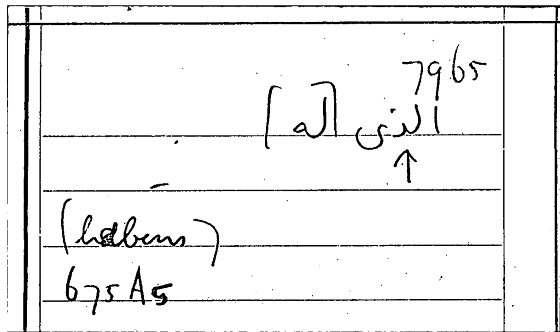 7965
الذى [له]
↑
(habens)
675A5